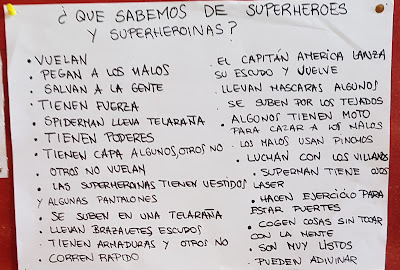 ¿QUE SABEMOS DE SUPERHEROES
Y SUPERHEROINAS?
• VUELAN
• PEGAN A LOS MALOS
• SALVAN A LA GENTE
• TIENEN FUERZA
• SPIDERMAN LLEVA TELARAÑA
• TIENEN PODERES
• TIENEN CAPA ALGUNOS, OTROS NO
• OTROS NO VUELAN
• LAS SUPERHEROINAS TIENEN VESTIDOS
Y ALGUNAS PANTALONES
• SE SUBEN EN UNA TELARAÑA
• LLEVAN BRAZALETES ESCUDOS
• TIENEN ARMADURAS Y OTROS NO
• CORREN RAPIDO
• EL CAPITÁN AMERICA LANZA
SU ESCUDO Y VUELVE
• LLEVAN MASCARAS ALGUNOS
• SE SUBEN POR LOS TEJADOS
• ALGUNOS TIENEN MOTO
PARA CAZAR A LOS MALOS
• LOS MALOS USAN PINCHOS
• LUCHAN CON LOS VILLANOS
• SUPERMAN TIENE OJOS
LASER
• HACEN EJERCICIO PARA
ESTAR FUERTES
• COGEN COSAS SIN TOCAR
CON LA MENTE
• SON MUY LISTOS
• PUEDEN ADIVINAR